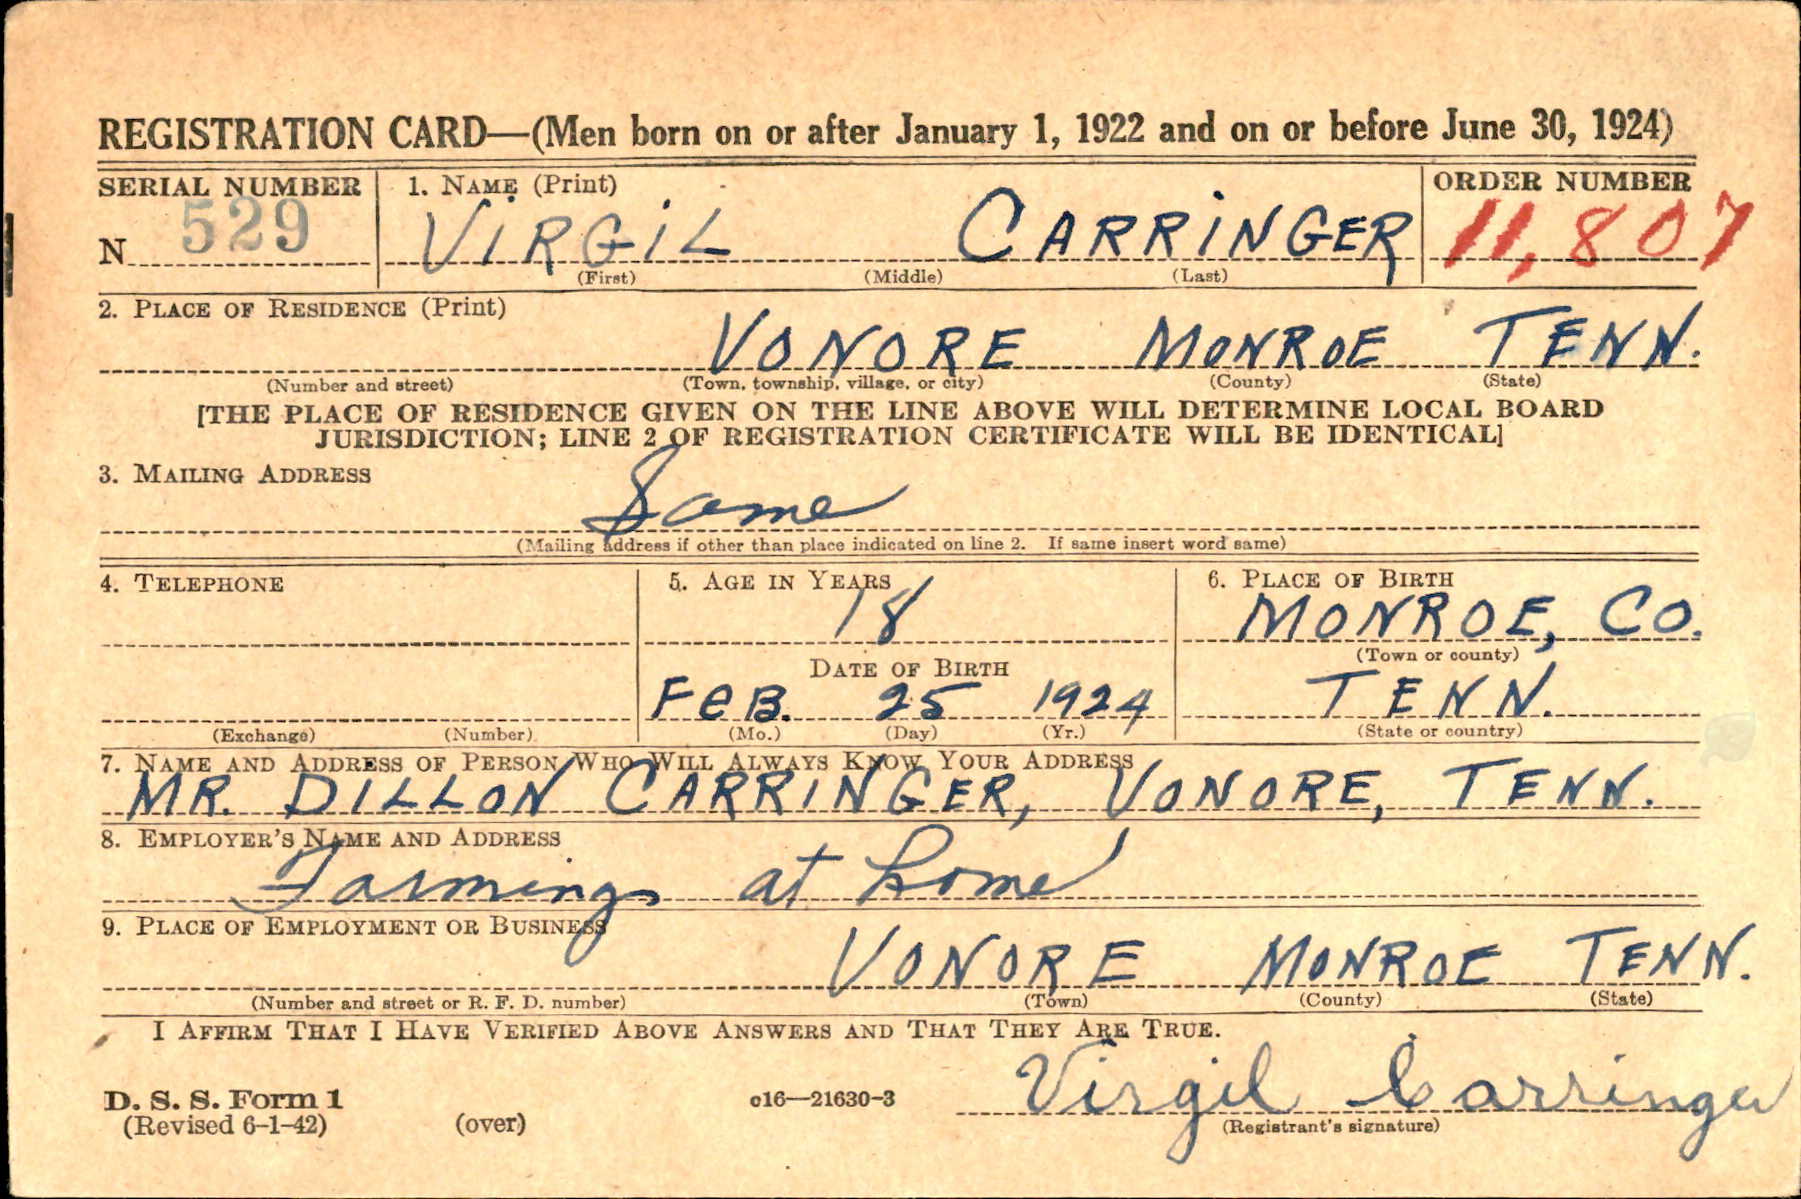 REGISTRATION CARD—(Men born on or after January 1, 1922 and on or before June 30, 1924)
SERIAL NUMBER 1. NAME (Print) ORDER NUMBER
N 529 VIRGIL CARRINGER 11,807
(First) (Middle) (Last)
2. PLACE OF RESIDENCE (Print)
VONORE MONROE TENN.
(Number and street) (Town, township, village, or city) (County) (State)
[THE PLACE OF RESIDENCE GIVEN ON THE LINE ABOVE WILL DETERMINE LOCAL BOARD
JURISDICTION; LINE 2 OF REGISTRATION CERTIFICATE WILL BE IDENTICAL]
3. MAILING ADDRESS
Same
(Mailing address if other than place indicated on line 2. If same insert word same)
4. TELEPHONE 5. AGE IN YEARS 6. PLACE OF BIRTH
18 MONROE, CO.
(Town or county)
DATE OF BIRTH
FeB. 25 1924 TENN.
(Exchange) (Number) (Mo.) (Day) (Yr.) (State or country)
7. NAME AND ADDRESS OF PERSON WHO WILL ALWAYS KNOW YOUR ADDRESS
MR. DILLON CARRINGER, VONORE, TENN.
8. EMPLOYER'S NAME AND ADDRESS
Farming at home
9. PLACE OF EMPLOYMENT OR BUSINESS
VONORE MONROE TENN.
(Number and street or R. F. D. number) (Town) (County) (State)
I AFFIRM THAT I HAVE VERIFIED ABOVE ANSWERS AND THAT THEY ARE TRUE.
D. S. S. Form 1 c16—21630-3 Virgil Carringer
(Revised 6-1-42) (over) (Registrant's signature)